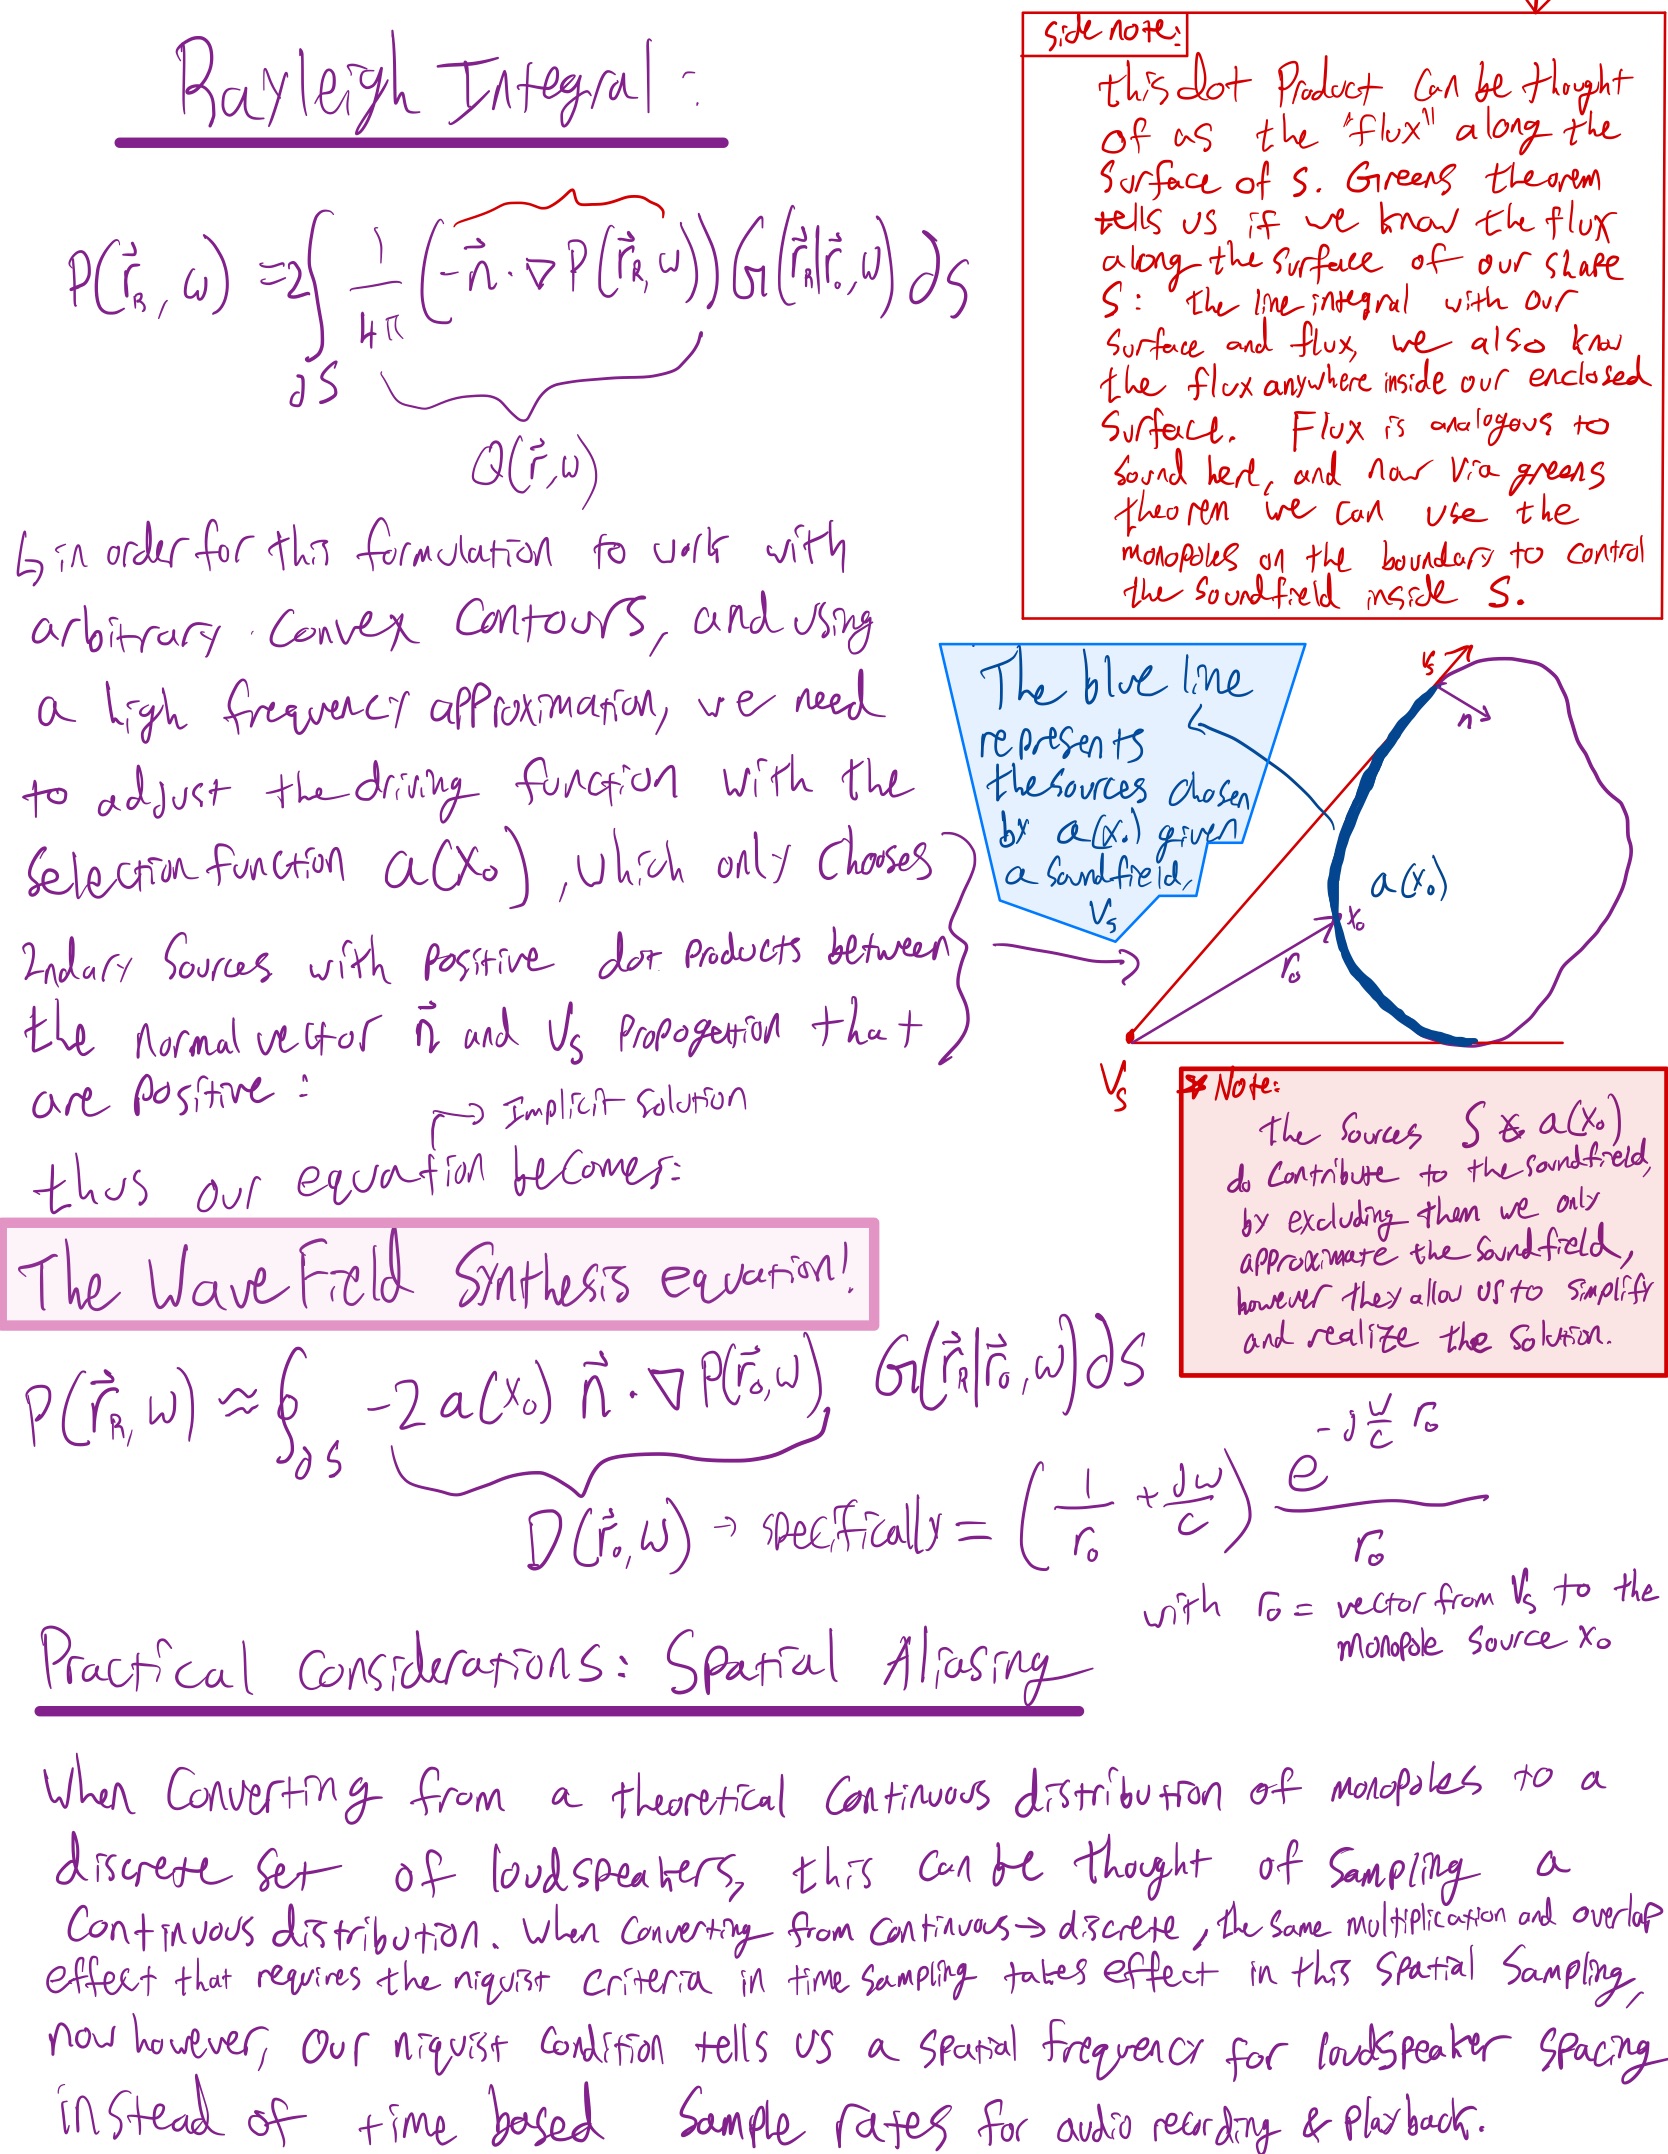 Rayleigh Integral:
P(r⃗_R, ω) = 2∫_∂S 1/4π (-n⃗ · ∇ P(r⃗_R, ω)) G(r⃗_R|r⃗_0, ω) ∂S
Q(r⃗, ω)
side note:
this dot Product can be thought
of as the "flux" along the
Surface of S. Greens theorem
tells us if we know the flux
along the surface of our shape
S: the line integral with our
surface and flux, we also know
the flux anywhere inside our enclosed
surface. Flux is analogous to
sound here, and now via greens
theorem we can use the
monopoles on the boundary to control
the soundfield inside S.
↳ in order for this formulation to work with
arbitrary convex contours, and using
a high frequency approximation, we need
to adjust the driving function with the
selection function a(x₀), which only chooses
2ndary sources with positive dot products between
the normal vector n⃗ and Vs propogation that
are positive:
The blue line
represents
the sources chosen
by a(x₀) given
a soundfield,
Vs
Vs
n
a(x₀)
x₀
r₀
Vs
→ Implicit solution
thus our equation becomes:
* Note:
the sources S & a(x₀)
do contribute to the soundfield,
by excluding them we only
approximate the soundfield,
however they allow us to simplify
and realize the solution.
The Wave Field Synthesis equation!
P(r⃗_R, ω) ≈ ∮_∂S -2 a(x₀) n⃗ · ∇ P(r⃗_0, ω) G(r⃗_R|r⃗_0, ω) ∂S
D(r⃗_0, ω) → specifically = (1/r₀ + jω/c) e^(-j ω/c r₀)/r₀
with r₀ = vector from Vs to the
monopole source x₀
Practical Considerations: Spatial Aliasing
When converting from a theoretical continuous distribution of monopoles to a
discrete set of loudspeakers, this can be thought of sampling a
continuous distribution. When converting from continuous → discrete, the same multiplication and overlap
effect that requires the niquist criteria in time sampling takes effect in this spatial sampling,
now however, our niquist condition tells us a spatial frequency for loudspeaker spacing
instead of time based sample rates for audio recording & playback.